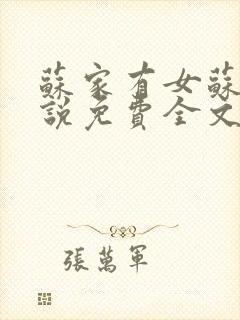 蘇家有女蘇
說免費全文
張萬軍